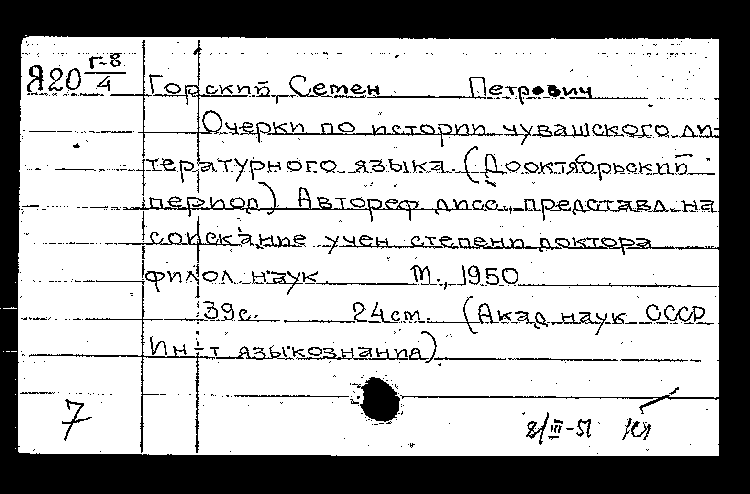 Я20 Г-8/4
Горский, Семен Петрович
Очерки по истории чувашского ли-
тературного языка (Дооктябрьский
период) Автореф дисс., представл на
соискание учен степени доктора
филол наук М., 1950
39с. 24см. (Акад наук СССР
Ин-т языкознания)
7
8/III-51